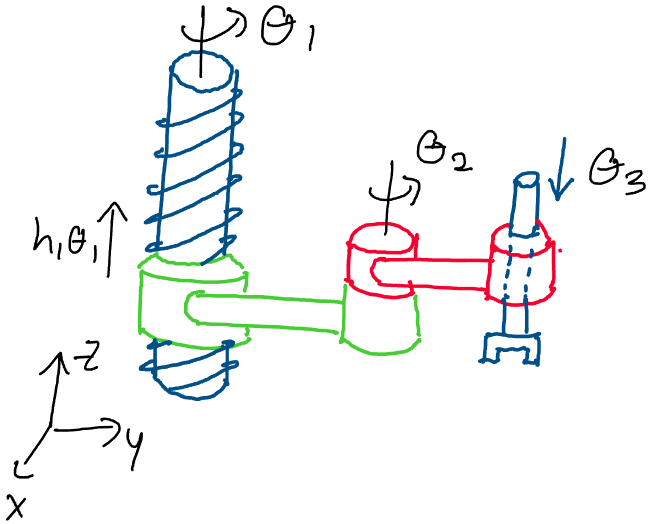 θ1
θ2
θ3
h1θ1
z
y
x